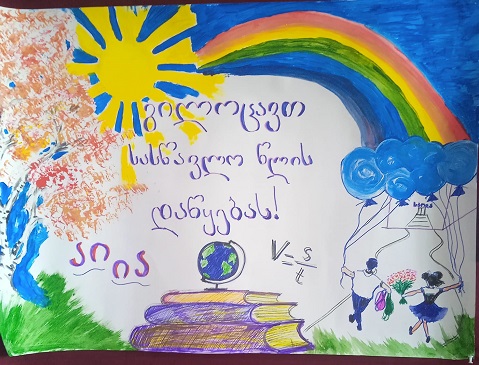 გილოცავთ
სასწავლო წლის
დაწყებას!
აი ია
V=s/t